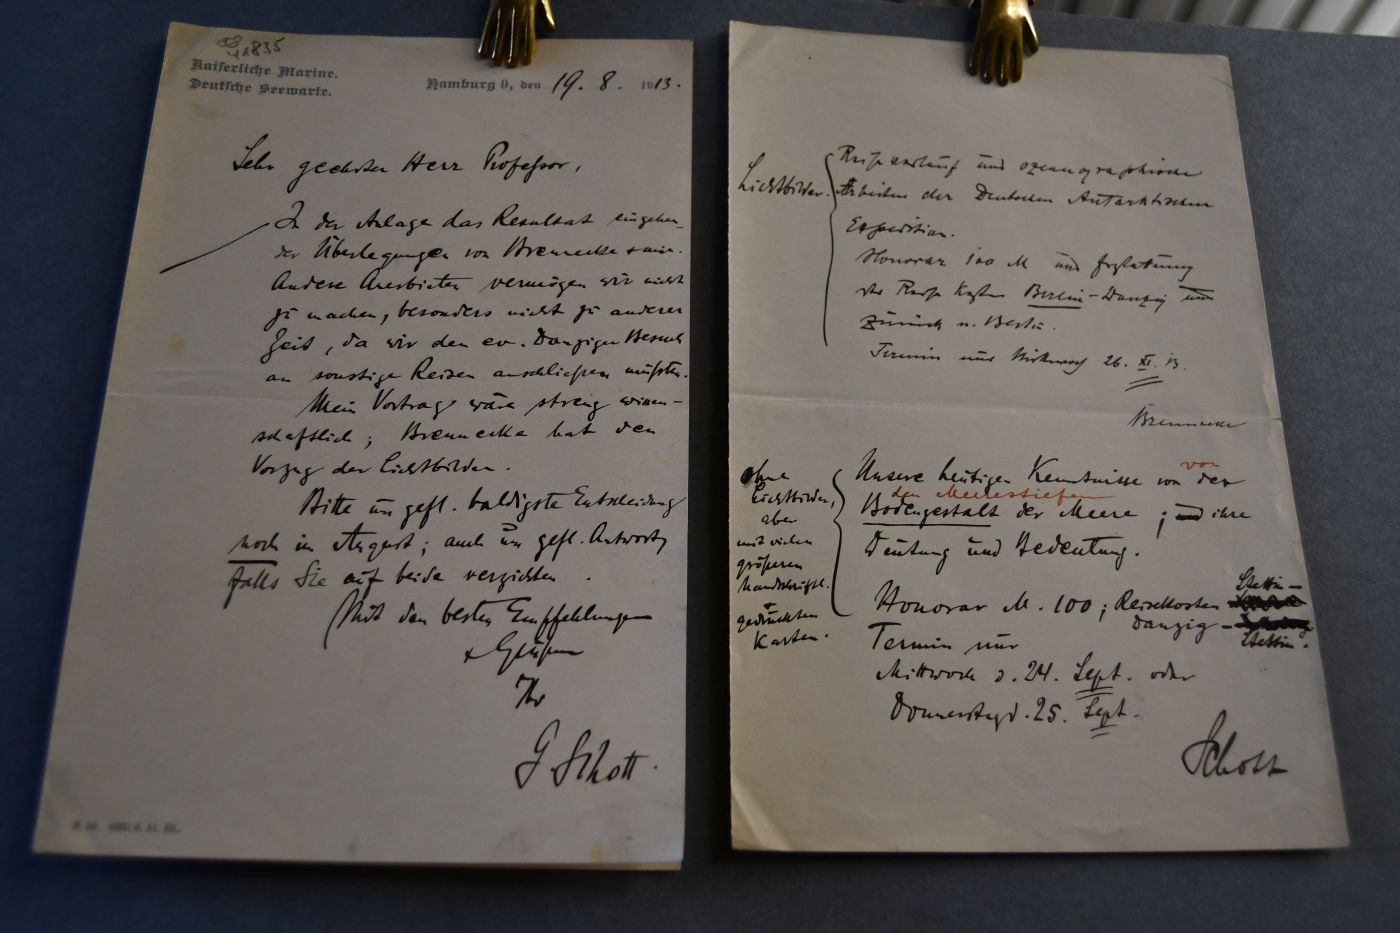 11835
Kaiserliche Marine.
Deutsche Seewarte.
Hamburg 9, den 19. 8. 1913.
Sehr geehrter Herr Professor,
In der Anlage das Resultat eingehen-
der Überlegungen von Brennecke + mir.
Andere Anerbieten vermögen wir nicht
zu machen, besonders nicht zu anderer
Zeit, da wir den ev. Danziger Besuch
an sonstige Reisen anschließen müßten.
Mein Vortrag wäre streng wissen-
schaftlich; Brennecke hat den
Vorzug der Lichtbilder.
Bitte um gefl. baldigste Entscheidung
noch im August; auch um gefl. Antwort,
falls Sie auf beide verzichten.
Mit den besten Empfehlungen
+ Grüßen
Ihr
G. Schott.
Lichtbilder.
Reiseverlauf und ozeanographische
Arbeiten der Deutschen Antarktischen
Expedition.
Honorar 100 M und Erstattung
der Reise Kosten Berlin-Danzig und
Zurück n. Berlin.
Termin nur Mittwoch 26. XI. 13.
Brennecke
ohne
Lichtbilder,
aber
mit vielen
größeren
handschriftl.
+
gedruckten
Karten.
Unsere heutigen Kenntnisse von der
von
den Meerestiefen
Bodengestalt der Meere ; und ihre
Deutung und Bedeutung.
Honorar M. 100; Reisekosten Stettin-
Danzig - Stettin.
Termin nur
Mittwoch d. 24. Sept. oder
Donnerstag d. 25. Sept.
Schott